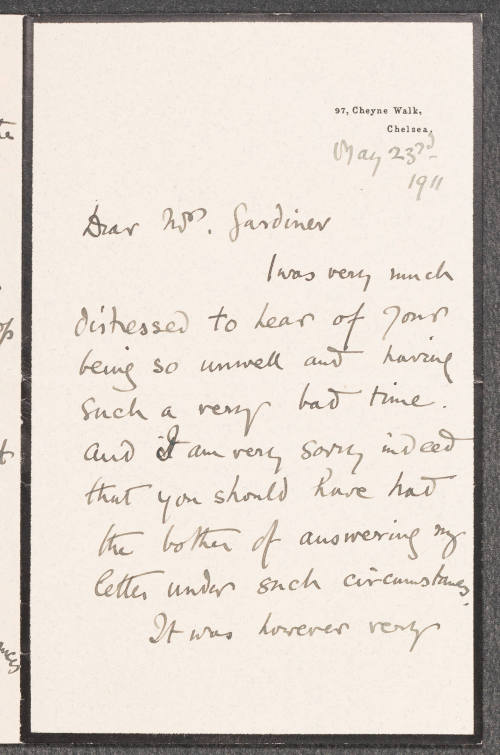 97, Cheyne Walk,
Chelsea.
May 23rd
1911
Dear Mrs. Gardiner
I was very much
distressed to hear of your
being so unwell and having
such a very bad time.
and I am very sorry indeed
that you should have had
the bother of answering my
letter under such circumstances.
It was however very